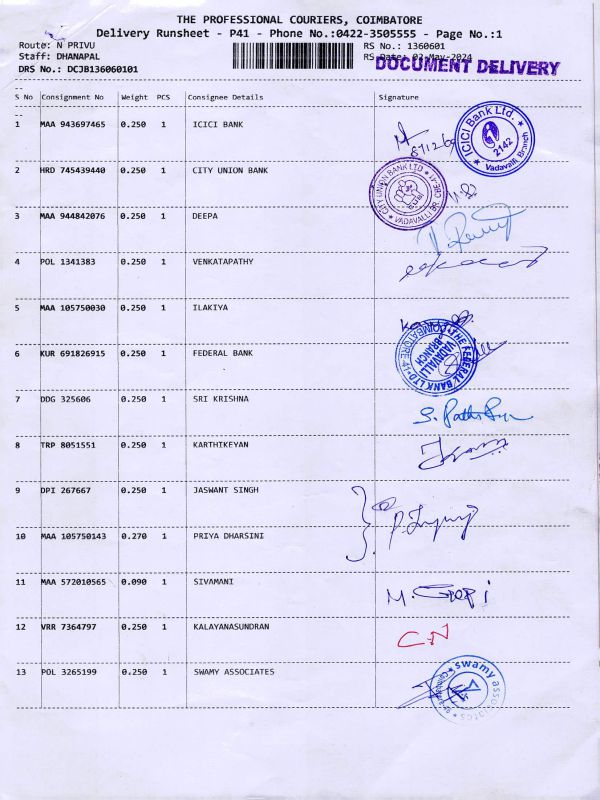 THE PROFESSIONAL COURIERS, COIMBATORE
Delivery Runsheet - P41 - Phone No.:0422-3505555 - Page No.:1
Route: N PRIVU RS No.: 1360601
Staff: DHANAPAL RS Date: 02-May-2024
DOCUMENT DELIVERY
DRS No.: DCJB136060101
S No Consignment No Weight PCS Consignee Details Signature
1 MAA 943697465 0.250 1 ICICI BANK
ICICI Bank Ltd. 2142 Vadavalli Branch
2 HRD 745439440 0.250 1 CITY UNION BANK
CITY UNION BANK LTD VADAVALLI BR. CBE-41
3 MAA 944842076 0.250 1 DEEPA
4 POL 1341383 0.250 1 VENKATAPATHY
5 MAA 105750030 0.250 1 ILAKIYA
6 KUR 691826915 0.250 1 FEDERAL BANK
THE FEDERAL BANK LTD COIMBATORE-41 VADAVALLI BRANCH
7 DDG 325606 0.250 1 SRI KRISHNA
8 TRP 8051551 0.250 1 KARTHIKEYAN
9 DPI 267667 0.250 1 JASWANT SINGH
10 MAA 105750143 0.270 1 PRIYA DHARSINI
11 MAA 572010565 0.090 1 SIVAMANI
M. GOPI
12 VRR 7364797 0.250 1 KALAYANASUNDRAN
C-N
13 POL 3265199 0.250 1 SWAMY ASSOCIATES
swamy associates